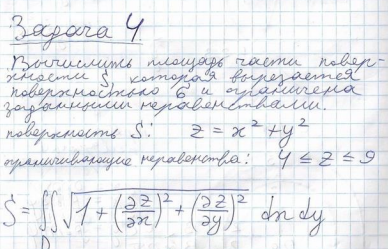 Задача 4
Вычислить площадь части повер-
хности S, которая вырезается
поверхностью б и ограничена
заданными неравенствами.
поверхность S: z = x² + y²
ограничивающие неравенства: 4 ≤ z ≤ 9
S = ∬_D √(1 + (∂z/∂x)² + (∂z/∂y)²) dx dy